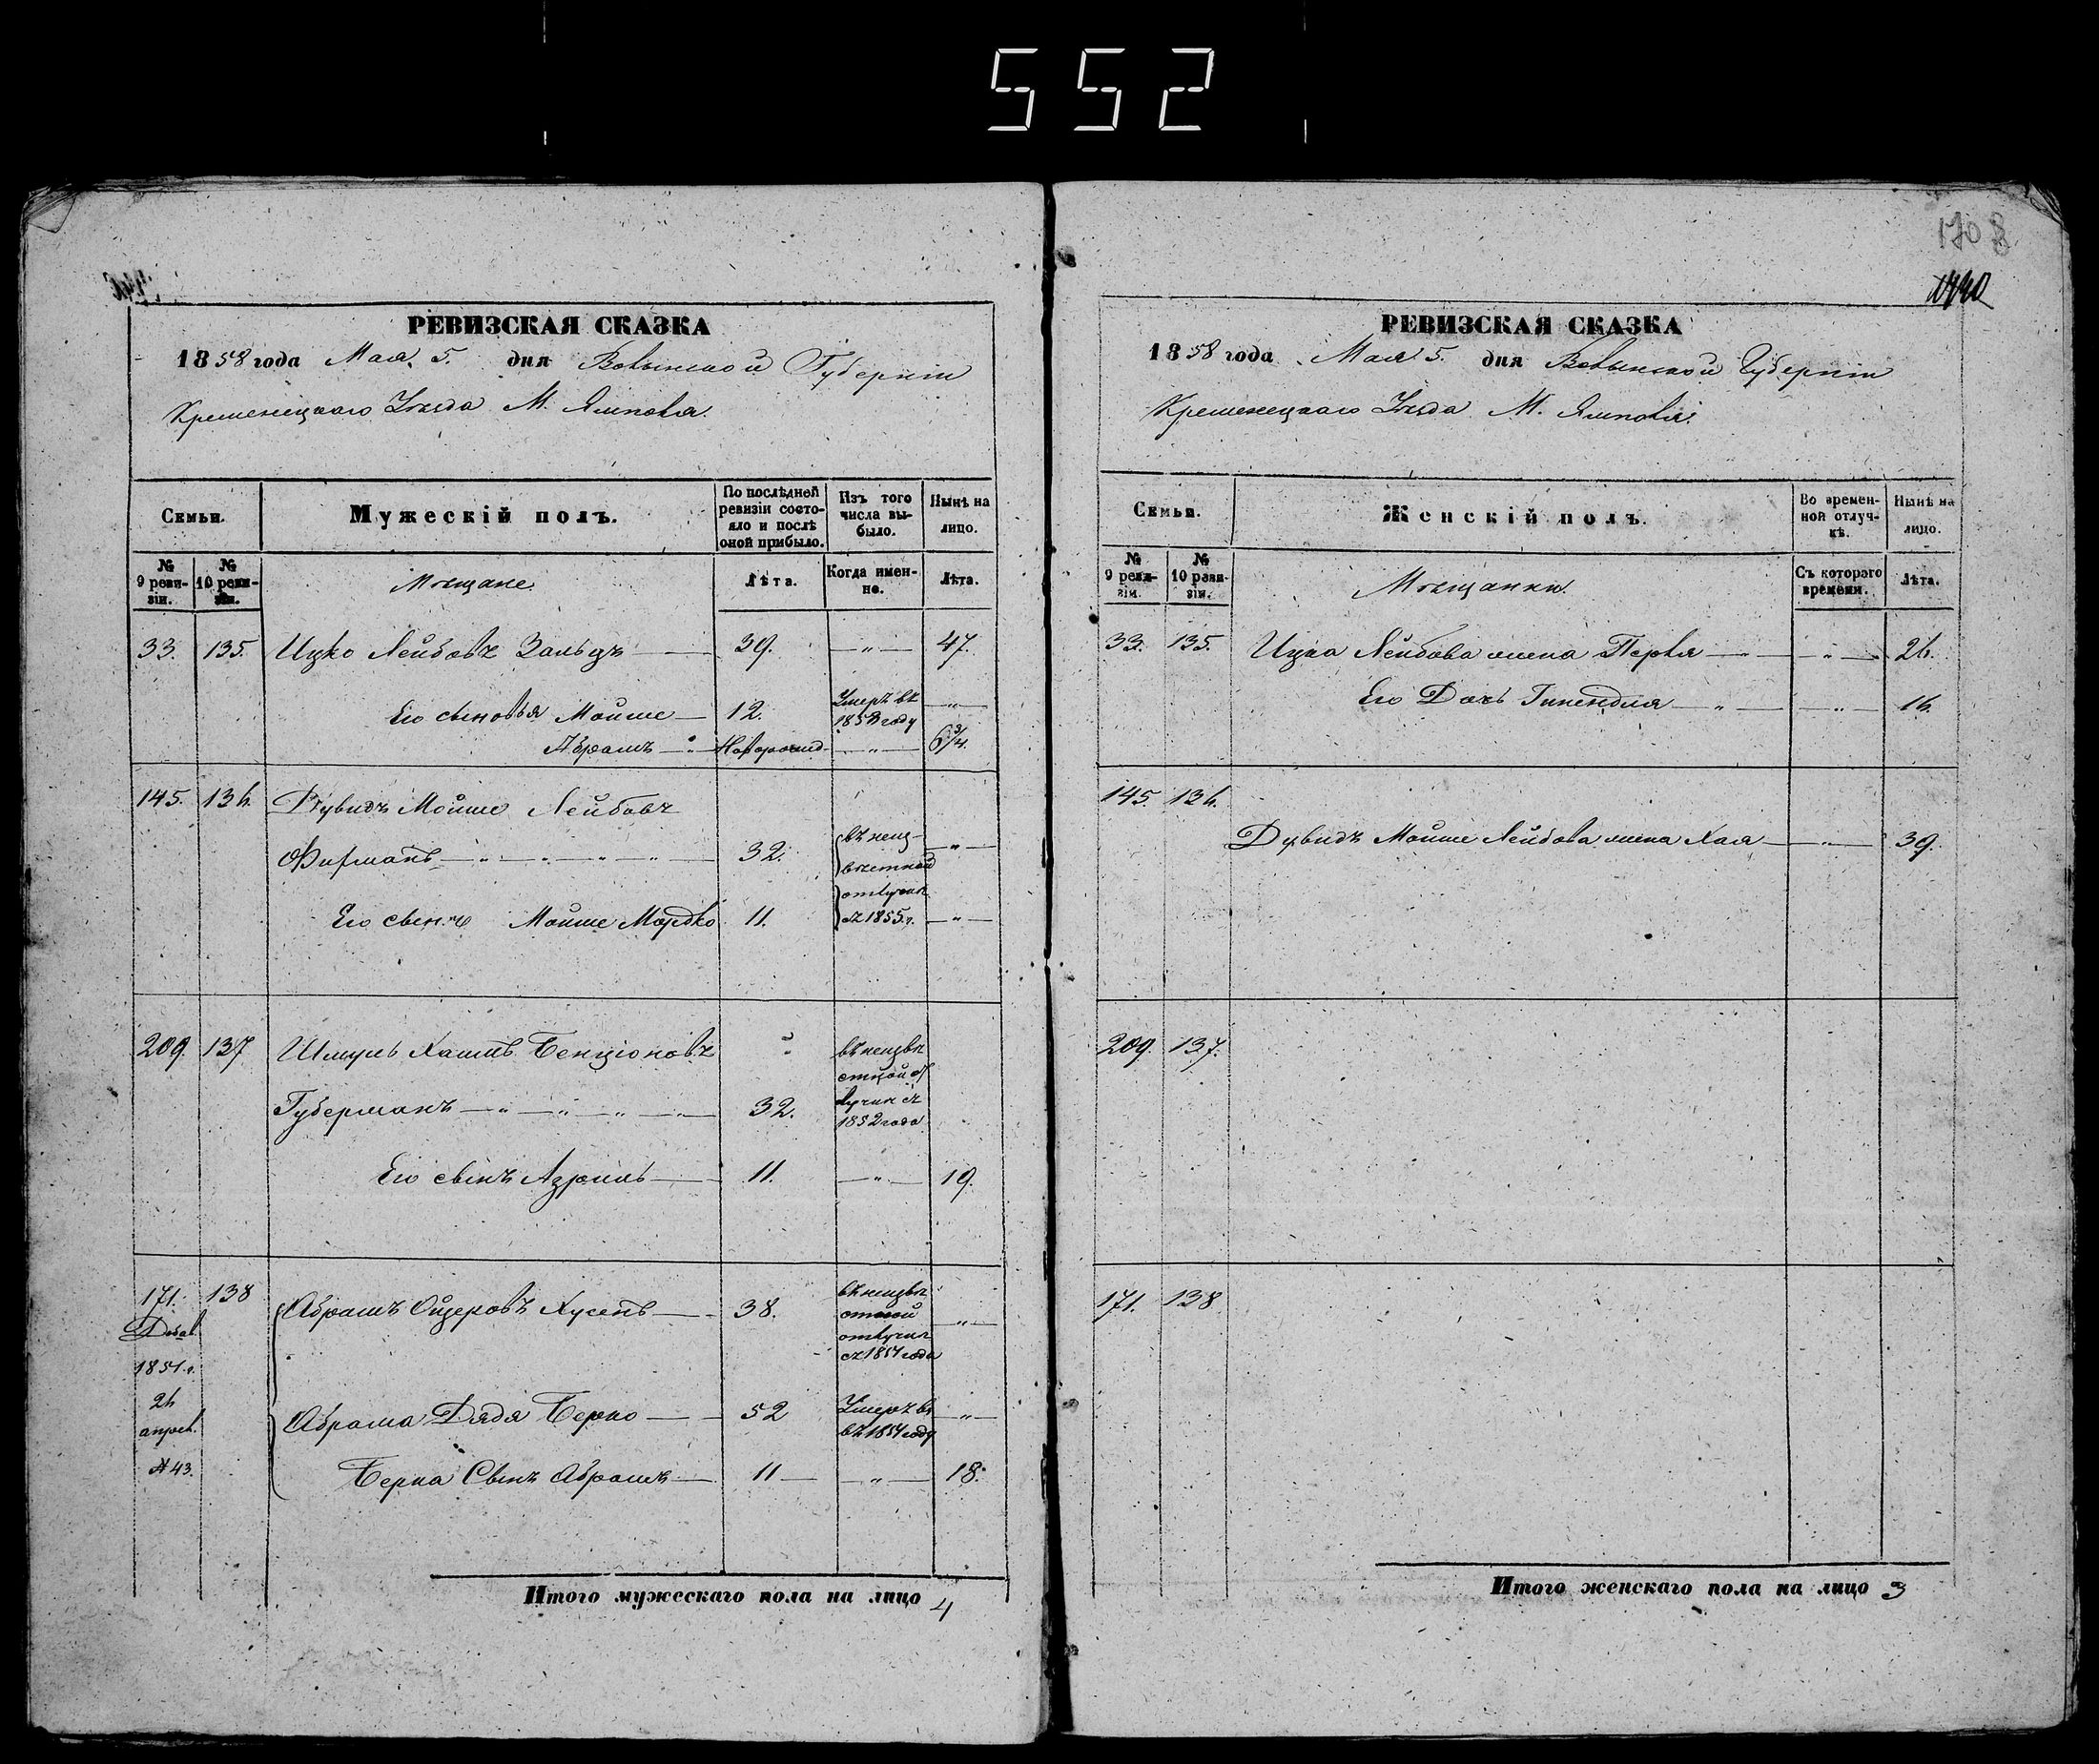 552
170
РЕВИЗСКАЯ СКАЗКА
1858 года Мая 5. дня Волынской Губерніи
Кременецкаго Уѣзда М. Ямполя.
Семьи.
Мужескій полъ.
По послѣдней ревизіи состояло и послѣ оной прибыло.
Изъ того числа выбыло.
Нынѣ на лицо.
№ 9 ревизіи.
№ 10 ревизіи.
Мѣщане
Лѣта.
Когда именно.
Лѣта.
33. 135. Ицко Лейбовъ Зальцъ 39. — „ — 47.
Его сыновья Мойше 12. Умеръ въ 1853 году — „ —
Абрамъ — „ — Новорожд. — „ — 6 3/4.
145. 136. Дувидъ Мойше Лейбовъ
Фирманъ — „ — „ — „ — „ — 32. въ неиз- — „ —
вѣстной
отлучкѣ
Его сынъ Мойше Мордко 11. съ 1855 г. — „ —
209. 137 Шмуль Хаимъ Бенціоновъ въ неизвѣ
стной от
Губерманъ — „ — „ — „ — „ — 32. лучкѣ съ
1852 года
Его сынъ Азриль 11. — „ — 19.
171. 138 Абрамъ Ойзеровъ Хусенъ 38. въ неизвѣ
Добав. стной — „ —
отлучкѣ
1851 г. съ 1854 года
26
Абрама Дядя Берко 52 Умеръ въ — „ —
апрел. въ 1854 году
№ 43. Берка Сынъ Абрамъ 11 — „ — 18.
Итого мужескаго пола на лицо 4
РЕВИЗСКАЯ СКАЗКА
1858 года Мая 5. дня Волынской Губерніи
Кременецкаго Уѣзда М. Ямполя.
Семьи.
Женскій полъ.
Во временной отлучкѣ.
Нынѣ на лицо.
№ 9 ревизіи.
№ 10 ревизіи.
Мѣщанки.
Съ котораго времени.
Лѣта.
33. 135. Ицка Лейбова жена Перля — „ — 26.
Его Дочь Гинендля — „ — — „ — 16.
145. 136.
Дувидъ Мойше Лейбова жена Хая — „ — 39.
209. 137.
171. 138
Итого женскаго пола на лицо 3